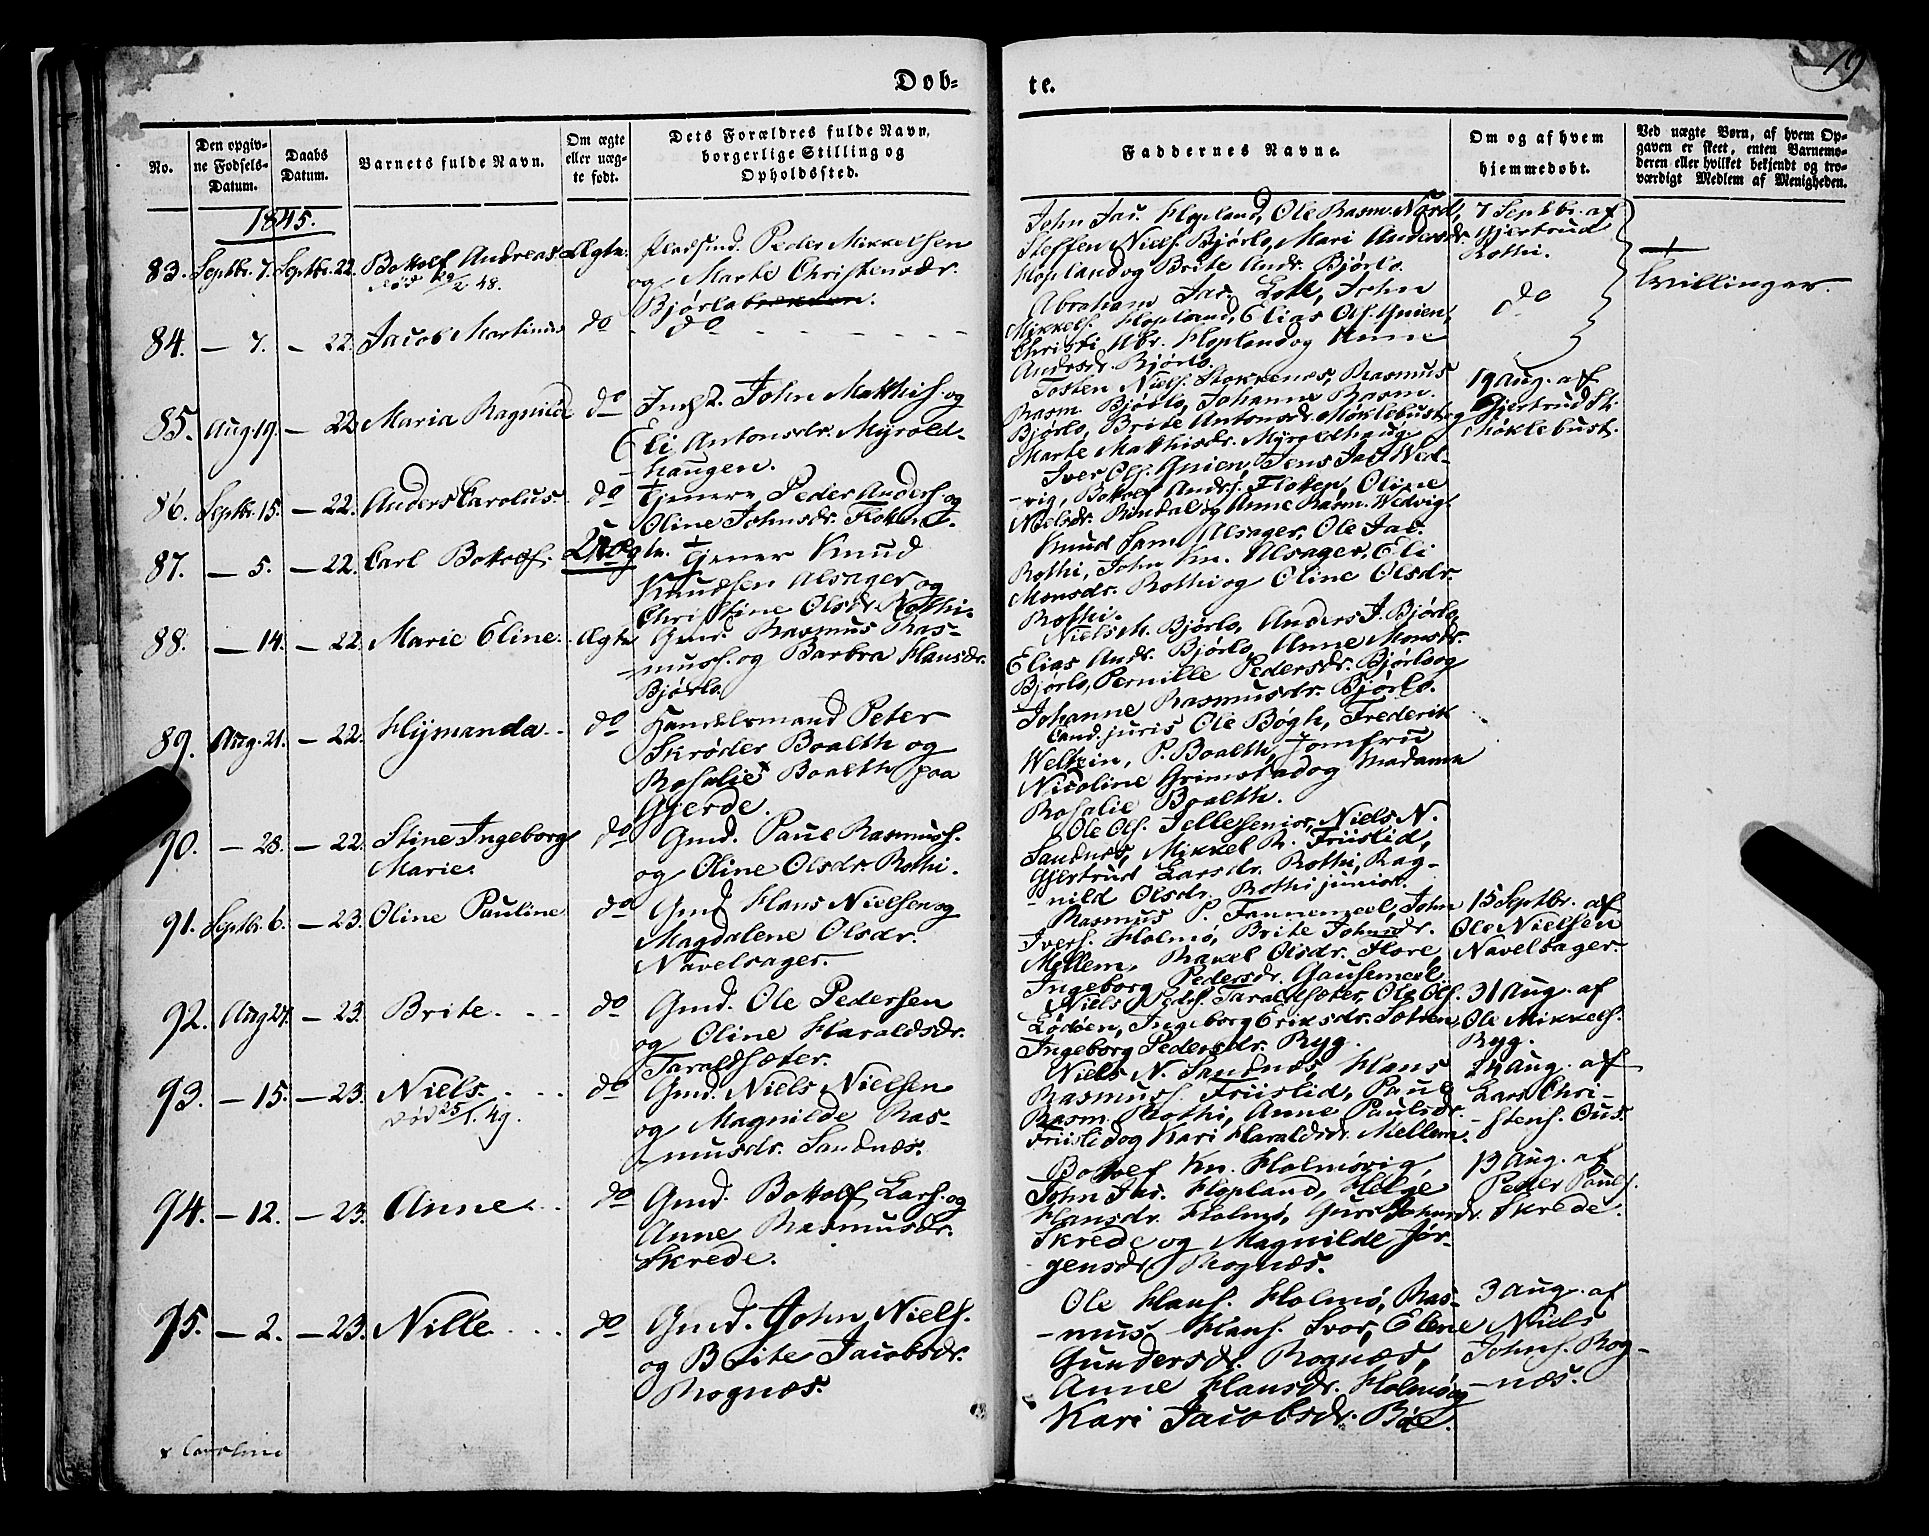 Døb-
te.
19
No.
Den opgiv-
ne Fødsels-
Datum.
Daabs
Datum.
Barnets fulde Navn.
Om ægte
eller uæg-
te født.
Dets Forældres fulde Navn,
borgerlige Stilling og
Opholdssted.
Faddernes Navne.
Om og af hvem
hjemmedøbt.
Ved uægte Børn, af hvem Op-
gaven er skeet, enten Barnemo-
deren eller hvilket bekjendt og tro-
værdigt Medlem af Menigheden.
1845.
83. Septbr. 7. Septbr. 22. Bottolf Andreas Ægte
død 2/2 48.
Pladsmd. Peder Mikkelsen
og Marte Christensdr.
Bjørlo
John Jac. Hopland, Ole Rasm. Nord,
Steffen Niels. Bjørlo, Mari Andersdr.
Hopland og Brite Andr. Bjørlo.
7 Septbr. af
Gjertrud
Rothi.
Tvillinger.
84. — 7. — 22. Jacob Martinus do
do
Abraham Jac. Lote, John
Mikkels. Hopland, Elias Ols. Gnien,
Christi Abr. Hopland og Anne
Andrsdr. Bjørlo.
do
85. Aug. 19. — 22. Maria Ragnilde do
Indst. John Matthis. og
Eli Antonsdr. Myrold-
haugen.
Tosten Niels. Stokkenes, Rasmus
Rasm. Bjørlo, Johanne Rasm.
Bjørlo, Brite Antonsdr. Møklebust og
Marte Matthisdr. Myroldhaug.
19 Aug. af
Gjertrud St.
Møklebust.
86. Septbr. 15. — 22. Anders Carolus. do
Tjenere Peder Anders. og
Oline Johnsdr. Floten.
Iver Ols. Gnien, Jens Jac. Wed-
vig, Bottolf Andrs. Floten, Oline
Nielsdr. Rindal og Anne Rasm. Wedvig.
87. — 5. — 22. Carl Bottolf. Uægte.
Tjener Knud
Knudsen Alsager og
Christine Olsdr. Rothi.
Knud Sam. Alsager, Ole Jac.
Rothi, John Kn. Alsager, Eli
Monsdr. Rothi og Oline Olsdr.
Rothi.
88. — 14. — 22. Marie Eline. Ægte
Gmd. Rasmus Ras-
muss. og Barbra Hansdr.
Bjørlo
Niels M. Bjørlo, Anders J. Bjørlo,
Elias Andr. Bjørlo, Anne Monsdr.
Bjørlo, Pernille Pedersdr. Bjørlo og
Johanne Rasmusdr. Bjørlo.
89. Aug. 21. — 22. Hijmanda. do
Handelsmand Peter
Skrøder Boalth og
Rosalie x Boalth paa
Gjerde.
Cand. juris Ole Bøgh, Frederik
Weltzin, P. Boalth, Jomfru
Nicoline Grimstad og Madame
Rosalie Boalth.
90. — 28. — 22. Stine Ingeborg
Marie.
do
Gmd. Paul Rasmuss.
og Oline Olsdr. Rothi.
Ole Ols. Jelle senior, Niels N.
Sandnes, Mikkel R. Friislid,
Gjertrud Larsdr. Rothi, Rag-
nild Olsdr. Rothi junior.
91. Septbr. 6. — 23. Oline Pauline do
Gmd Hans Nielsen og
Magdalene Olsdr.
Navelsager.
Rasmus P. Tannemeel, John
Ivers. Holmø, Brite Johnsdr.
Mellem, Rakel Olsdr. Hore,
Ingeborg Pedersdr. Gausemeel.
15 Septbr. af
Ole Nielsen
Navelsager.
92. Aug 27. — 23. Brite. do
Gmd. Ole Pedersen
og Oline Haraldsdr.
Taraldsæter.
Niels Peds. Taraldsæter, Ole Ols.
Lødøen, Ingeborg Eriksdr. Sætren,
Ingeborg Pedersdr. Ryg.
31 Aug. af
Ole Mikkels.
Ryg.
93. — 15. — 23. Niels. do
død 25/1. 49.
Gmd. Niels Nielsen
og Magnilde Ras-
musdr. Sandnæs.
Niels N. Sandnæs, Hans
Rasmuss. Friislid, Paul
Rasm. Rothi, Anne Paulsdr.
Friislid og Kari Haraldsdr. Mellem.
24 Aug. af
Lars Chri-
stens. Ous.
94. — 12. — 23. Anne. do
Gmd. Bottolf Lars. og
Anne Rasmusdr.
Skrede.
Bottolf Kn. Holmøvig,
John Jac. Hopland, Helge
Hansdr. Holmø, Guro Johnsdr.
Skrede og Magnilde Jør-
gensdr. Rognæs.
13 Aug. af
Peder Pauls.
Skrede.
95. — 2. — 23. Nille. do
Gmd. John Niels.
og Brite Jacobsdr.
Rognæs.
Ole Hans. Holmø, Ras-
mus Hans. Svor, Elene
Gundersdr. Rognæs,
Anne Hansdr. Holmø og
Kari Jacobsdr. Bøe.
3 Aug. af
Niels
Johns. Rog-
næs.
x Caroline